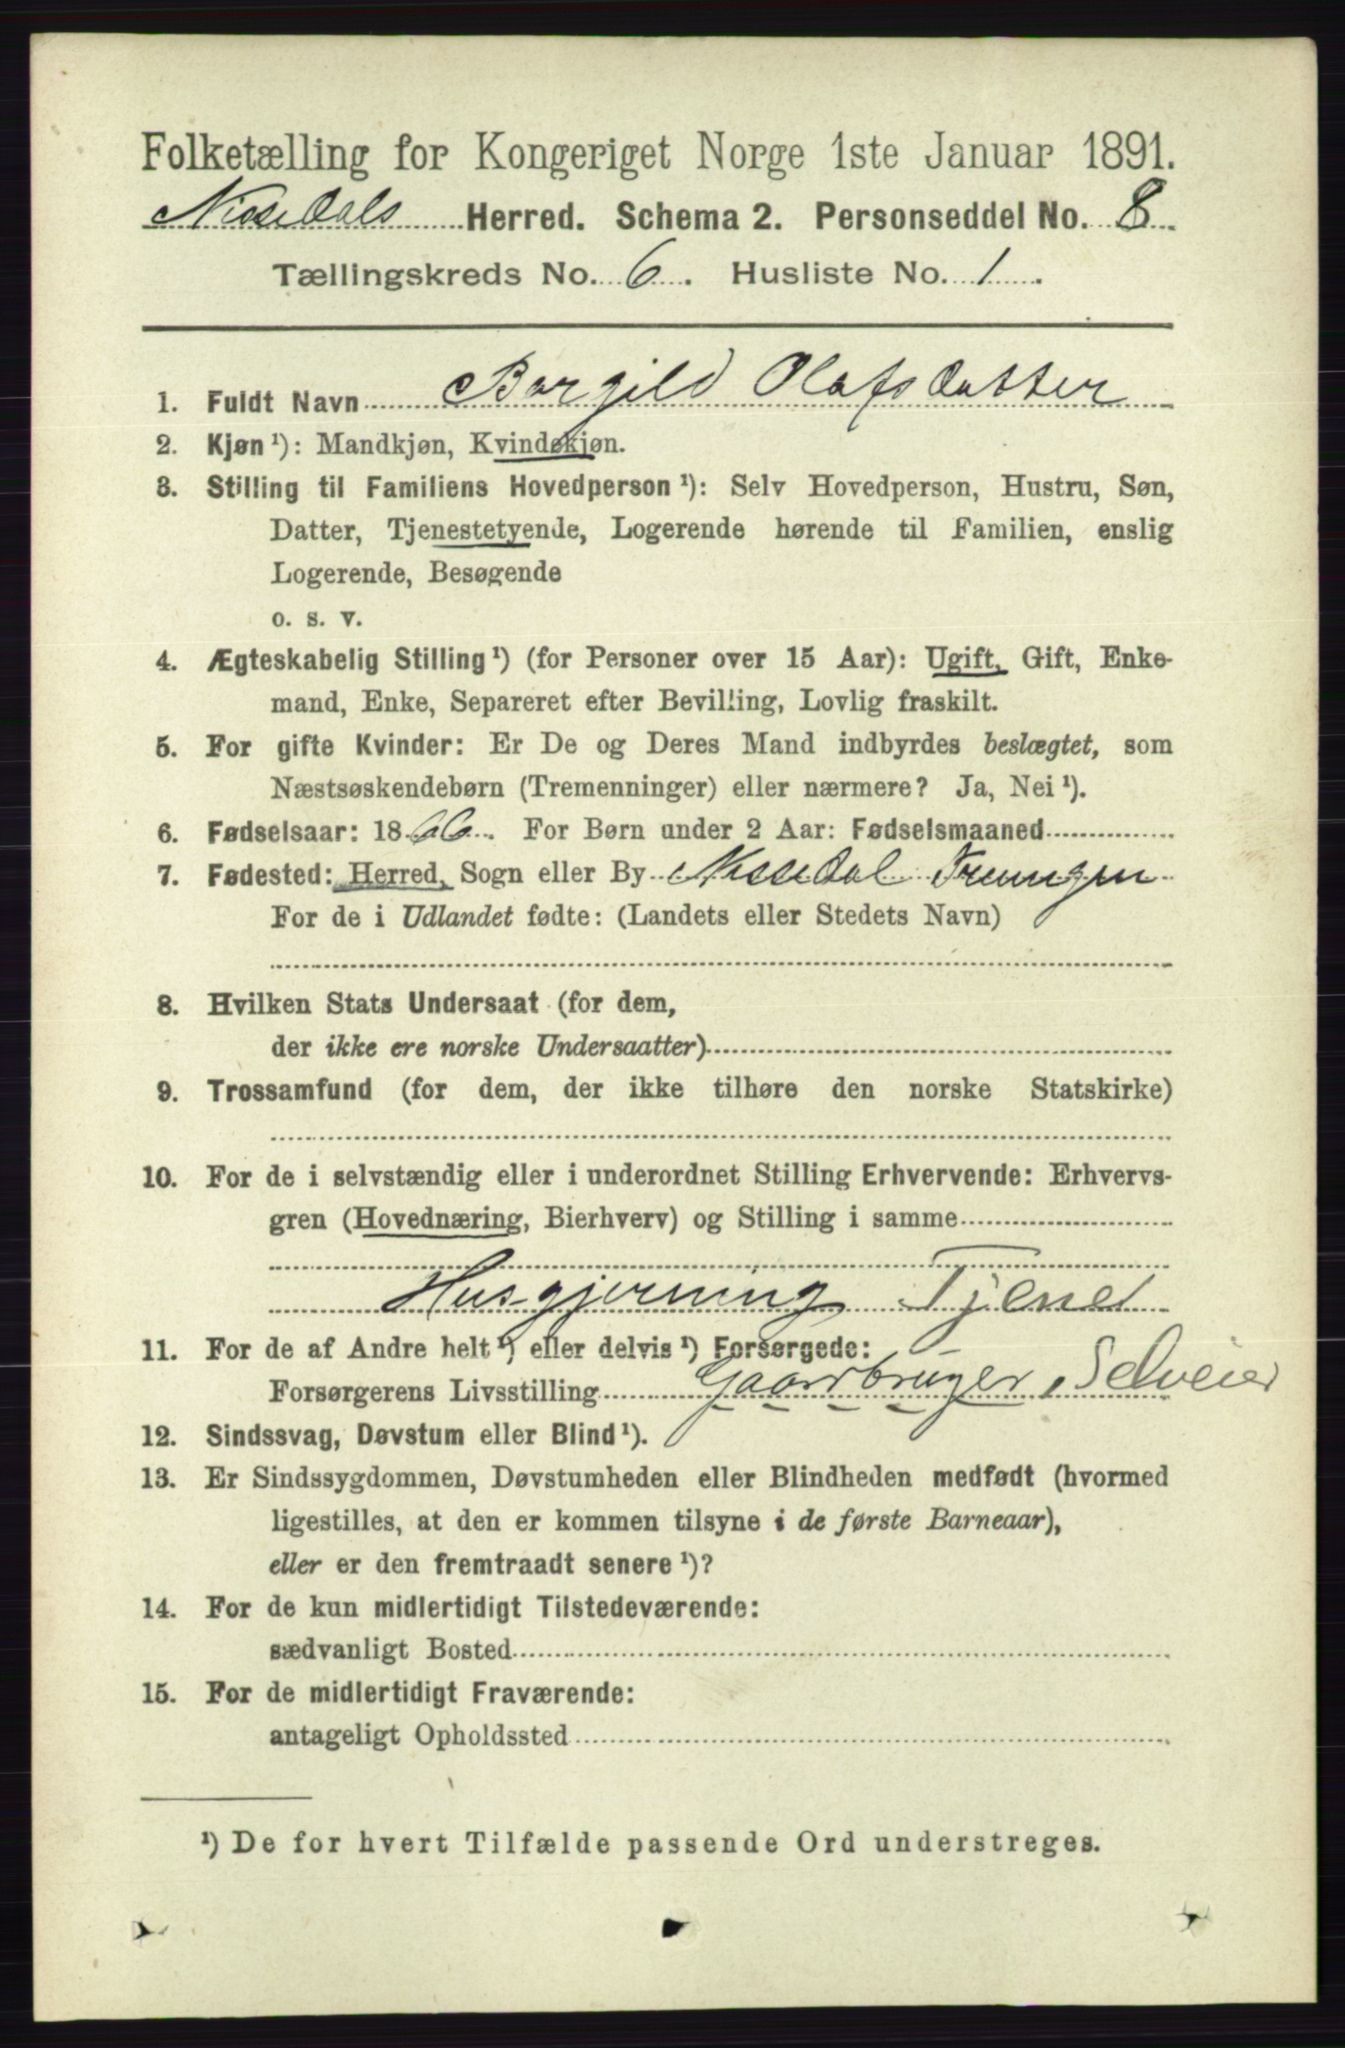 Folketælling for Kongeriget Norge 1ste Januar 1891.
Nissedals Herred. Schema 2. Personseddel No. 8
Tællingskreds No. 6. Husliste No. 1.
1. Fuldt Navn Borgild Olafsdatter
2. Kjøn ¹): Mandkjøn, Kvindekjøn.
3. Stilling til Familiens Hovedperson ¹): Selv Hovedperson, Hustru, Søn,
Datter, Tjenestetyende, Logerende hørende til Familien, enslig
Logerende, Besøgende
o. s. v.
4. Ægteskabelig Stilling ¹) (for Personer over 15 Aar): Ugift, Gift, Enke-
mand, Enke, Separeret efter Bevilling, Lovlig fraskilt.
5. For gifte Kvinder: Er De og Deres Mand indbyrdes beslægtet, som
Næstsøskendebørn (Tremenninger) eller nærmere? Ja, Nei ¹).
6. Fødselsaar: 1866. For Børn under 2 Aar: Fødselsmaaned
7. Fødested: Herred, Sogn eller By Nissedal Treungen
For de i Udlandet fødte: (Landets eller Stedets Navn)
8. Hvilken Stats Undersaat (for dem,
der ikke ere norske Undersaatter)
9. Trossamfund (for dem, der ikke tilhøre den norske Statskirke)
10. For de i selvstændig eller i underordnet Stilling Erhvervende: Erhvervs-
gren (Hovednæring, Bierhverv) og Stilling i samme
Husgjerning Tjener
11. For de af Andre helt ¹) eller delvis ¹) Forsørgede:
Forsørgerens Livsstilling Gaardbruger, Selveier
12. Sindssvag, Døvstum eller Blind ¹).
13. Er Sindssygdommen, Døvstumheden eller Blindheden medfødt (hvormed
ligestilles, at den er kommen tilsyne i de første Barneaar),
eller er den fremtraadt senere ¹)?
14. For de kun midlertidigt Tilstedeværende:
sædvanligt Bosted
15. For de midlertidigt Fraværende:
antageligt Opholdssted
¹) De for hvert Tilfælde passende Ord understreges.